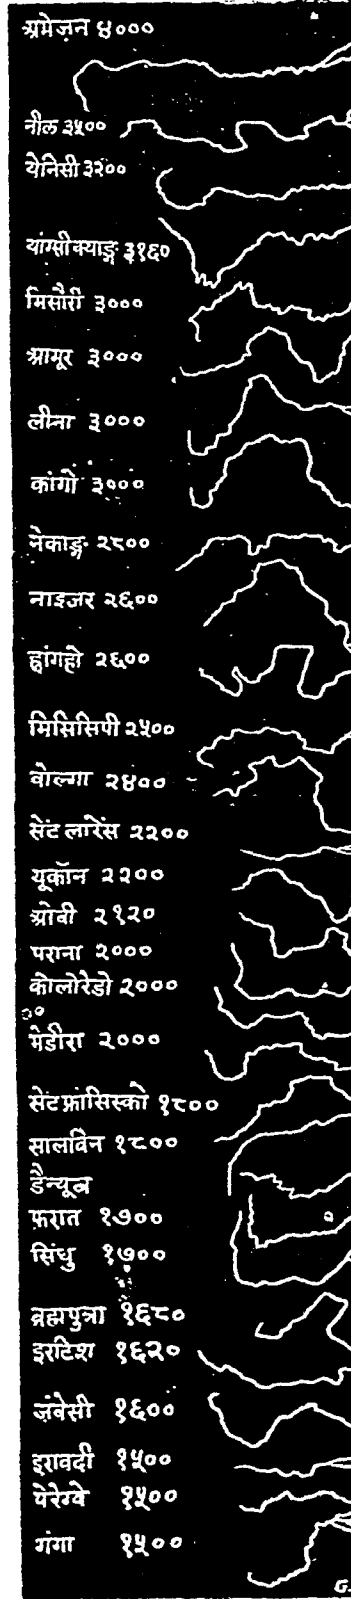 अमेज़न ४०००
नील ३५००
येनिसी ३२००
यांग्सीक्याङ्ग ३१६०
मिसौरी ३०००
आमूर ३०००
लीना ३०००
कांगो ३०००
मेकाङ्ग २८००
नाइजर २६००
ह्वांगहो २६००
मिसिसिपी २५००
वोल्गा २४००
सेंट लारेंस २२००
यूकॉन २२००
ओबी २१२०
पराना २०००
कोलोरेडो २०००
मेडीरा २०००
सेंट फ्रांसिस्को १८००
सालविन १८००
डैन्यूब
फ़रात १७००
सिंधु १७००
ब्रह्मपुत्रा १६८०
इरटिश १६२०
ज़ंबेसी १६००
इरावदी १५००
पेरेग्वे १५००
गंगा १५००
G.